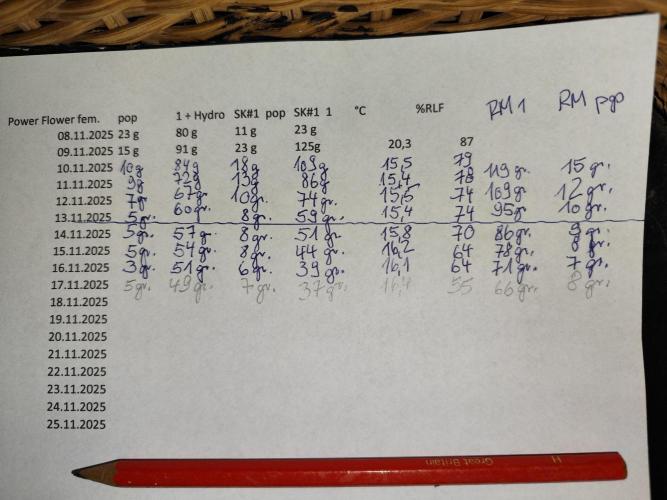 Power Flower fem. pop 1 + Hydro SK#1 pop SK#1 1 °C %RLF RM 1 RM pop
08.11.2025 23 g 80 g 11 g 23 g
09.11.2025 15 g 91 g 23 g 125g 20,3 87
10.11.2025 10g 84g 18g 109g 15,5 79 119 gr. 15 gr.
11.11.2025 9g 72g 13g 86g 15,4 78 109 gr. 12 gr.
12.11.2025 7gr 67gr. 10gr. 74gr. 15,5 74 95gr 10 gr.
13.11.2025 5gr. 60gr. 8gr. 59gr. 15,4 74
14.11.2025 5gr. 57gr. 8gr. 51gr. 15,8 70 86gr. 9 gr.
15.11.2025 5gr. 54gr. 8gr. 44gr. 16,2 64 78gr. 8 gr.
16.11.2025 3gr. 51gr. 6gr. 39gr. 16,1 64 71gr. 7 gr.
17.11.2025 5gr. 49gr. 7gr. 37gr. 16,4 55 66gr. 8 gr.
18.11.2025
19.11.2025
20.11.2025
21.11.2025
22.11.2025
23.11.2025
24.11.2025
25.11.2025
Great Britain H